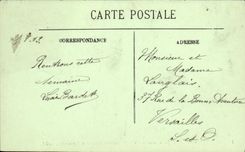 CARTE POSTALE
CORRESPONDANCE
ADRESSE
Rentrons cette
semaine
Monsieur et
Madame
Langlais
37 Rue de la Bonne Aventure
Versailles
S. et O.